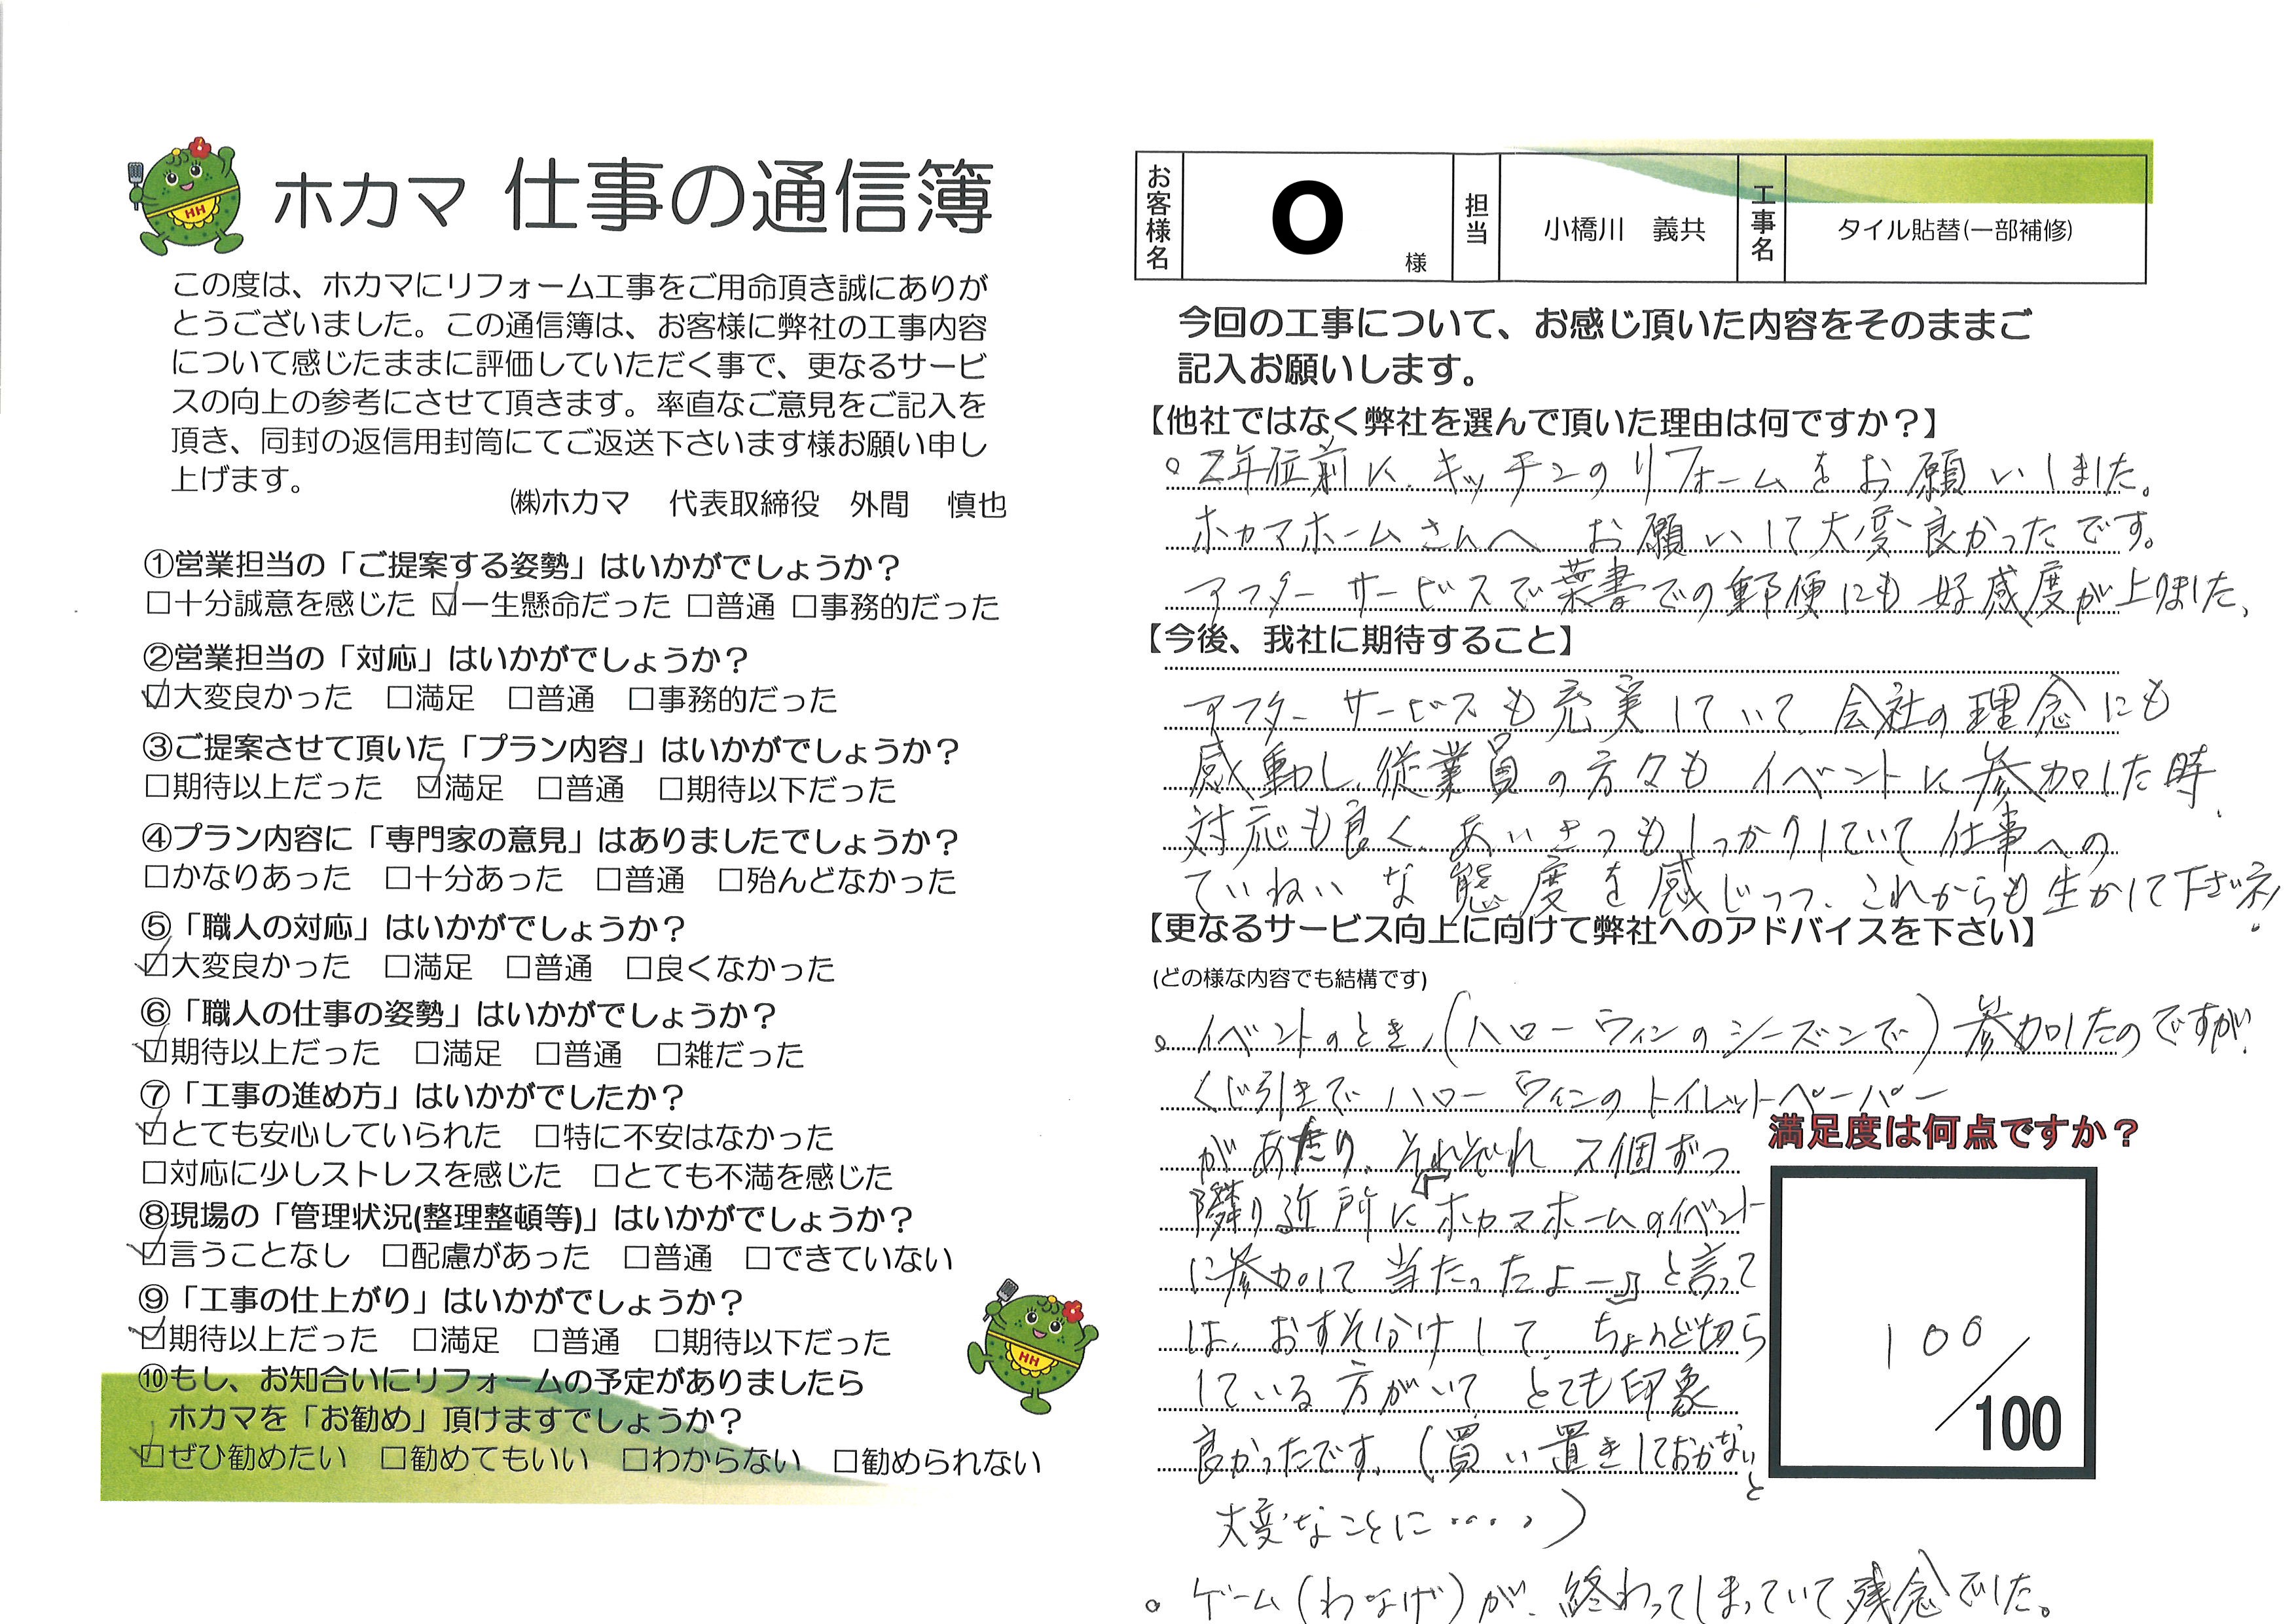 ホカマ 仕事の通信簿
この度は、ホカマにリフォーム工事をご用命頂き誠にありが
とうございました。この通信簿は、お客様に弊社の工事内容
について感じたままに評価していただく事で、更なるサービ
スの向上の参考にさせて頂きます。率直なご意見をご記入を
頂き、同封の返信用封筒にてご返送下さいます様お願い申し
上げます。
㈱ホカマ 代表取締役 外間 慎也
①営業担当の「ご提案する姿勢」はいかがでしょうか？
□十分誠意を感じた ☑一生懸命だった □普通 □事務的だった
②営業担当の「対応」はいかがでしょうか？
☑大変良かった □満足 □普通 □事務的だった
③ご提案させて頂いた「プラン内容」はいかがでしょうか？
□期待以上だった ☑満足 □普通 □期待以下だった
④プラン内容に「専門家の意見」はありましたでしょうか？
□かなりあった □十分あった □普通 □殆んどなかった
⑤「職人の対応」はいかがでしょうか？
☑大変良かった □満足 □普通 □良くなかった
⑥「職人の仕事の姿勢」はいかがでしょうか？
☑期待以上だった □満足 □普通 □雑だった
⑦「工事の進め方」はいかがでしたか？
☑とても安心していられた □特に不安はなかった
□対応に少しストレスを感じた □とても不満を感じた
⑧現場の「管理状況(整理整頓等)」はいかがでしょうか？
☑言うことなし □配慮があった □普通 □できていない
⑨「工事の仕上がり」はいかがでしょうか？
☑期待以上だった □満足 □普通 □期待以下だった
⑩もし、お知合いにリフォームの予定がありましたら
ホカマを「お勧め」頂けますでしょうか？
☑ぜひ勧めたい □勧めてもいい □わからない □勧められない
HH
HH
お客様名 O 様 担当 小橋川 義共 工事名 タイル貼替(一部補修)
今回の工事について、お感じ頂いた内容をそのままご
記入お願いします。
【他社ではなく弊社を選んで頂いた理由は何ですか？】
○2年位前に、キッチンのリフォームをお願いしました。
ホカマホームさんへ お願いして大変良かったです。
アフターサービスで葉書での郵便にも好感度が上りました、
【今後、我社に期待すること】
アフターサービスも充実していて、会社の理念にも
感動し、従業員の方々も イベントに参加した時、
対応も良く、あいさつもしっかりしていて仕事への
ていねいな態度を感じつつ、これからも生かして下さいネ!
【更なるサービス向上に向けて弊社へのアドバイスを下さい】
(どの様な内容でも結構です)
○イベントのとき、(ハローウィンのシーズンで)参加したのですが、
くじ引きで ハローウィンのトイレットペーパー
があたり、それぞれ 2個ずつ
隣り近所に『ホカマホームのイベント
に参加して 当たったよー』と言って
は、おすそ分けして、ちょうど切ら
している方がいて とても印象
良かったです。(買い置きしておかないと
大変なことに・・・・)
○ ゲーム(わなげ)が、終わってしまっていて残念でした。
満足度は何点ですか？
100/100